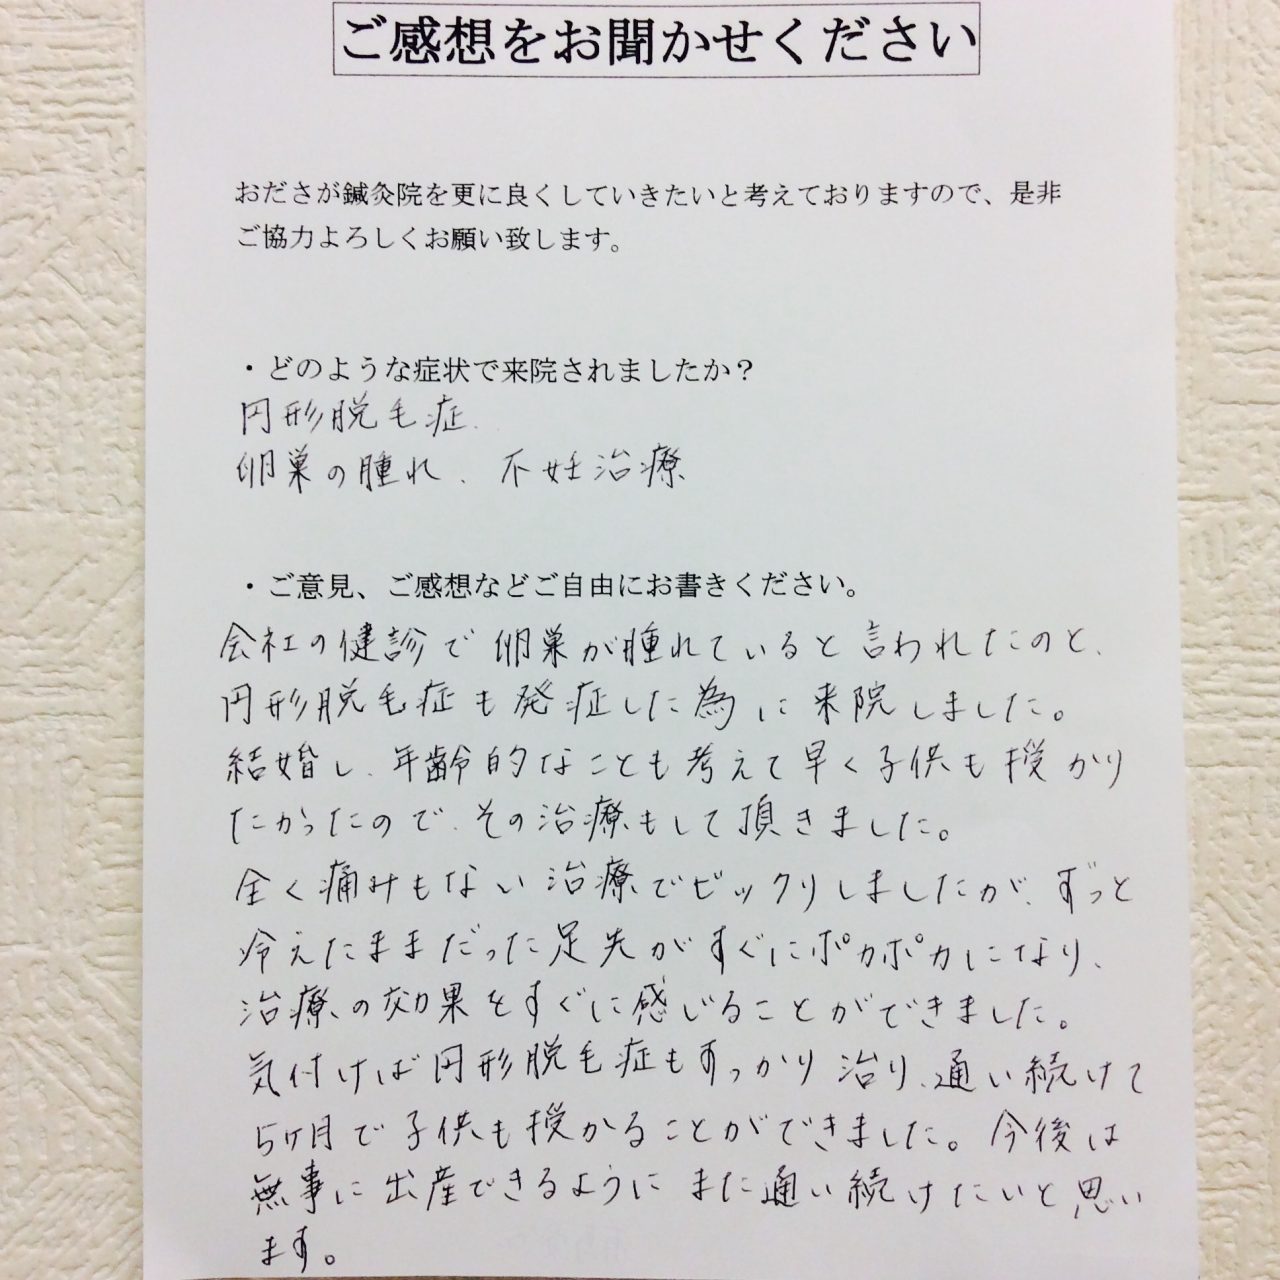 ご感想をお聞かせください
おださが鍼灸院を更に良くしていきたいと考えておりますので、是非
ご協力よろしくお願い致します。
・どのような症状で来院されましたか？
円形脱毛症、
卵巣の腫れ、不妊治療
・ご意見、ご感想などご自由にお書きください。
会社の健診で卵巣が腫れていると言われたのと、
円形脱毛症も発症した為に来院しました。
結婚し、年齢的なことも考えて早く子供も授かり
たかったので、その治療もして頂きました。
全く痛みもない治療でビックリしましたが、ずっと
冷えたままだった足先がすぐにポカポカになり、
治療の効果をすぐに感じることができました。
気付けば円形脱毛症もすっかり治り、通い続けて
5ヶ月で子供も授かることができました。今後は
無事に出産できるようにまた通い続けたいと思い
ます。